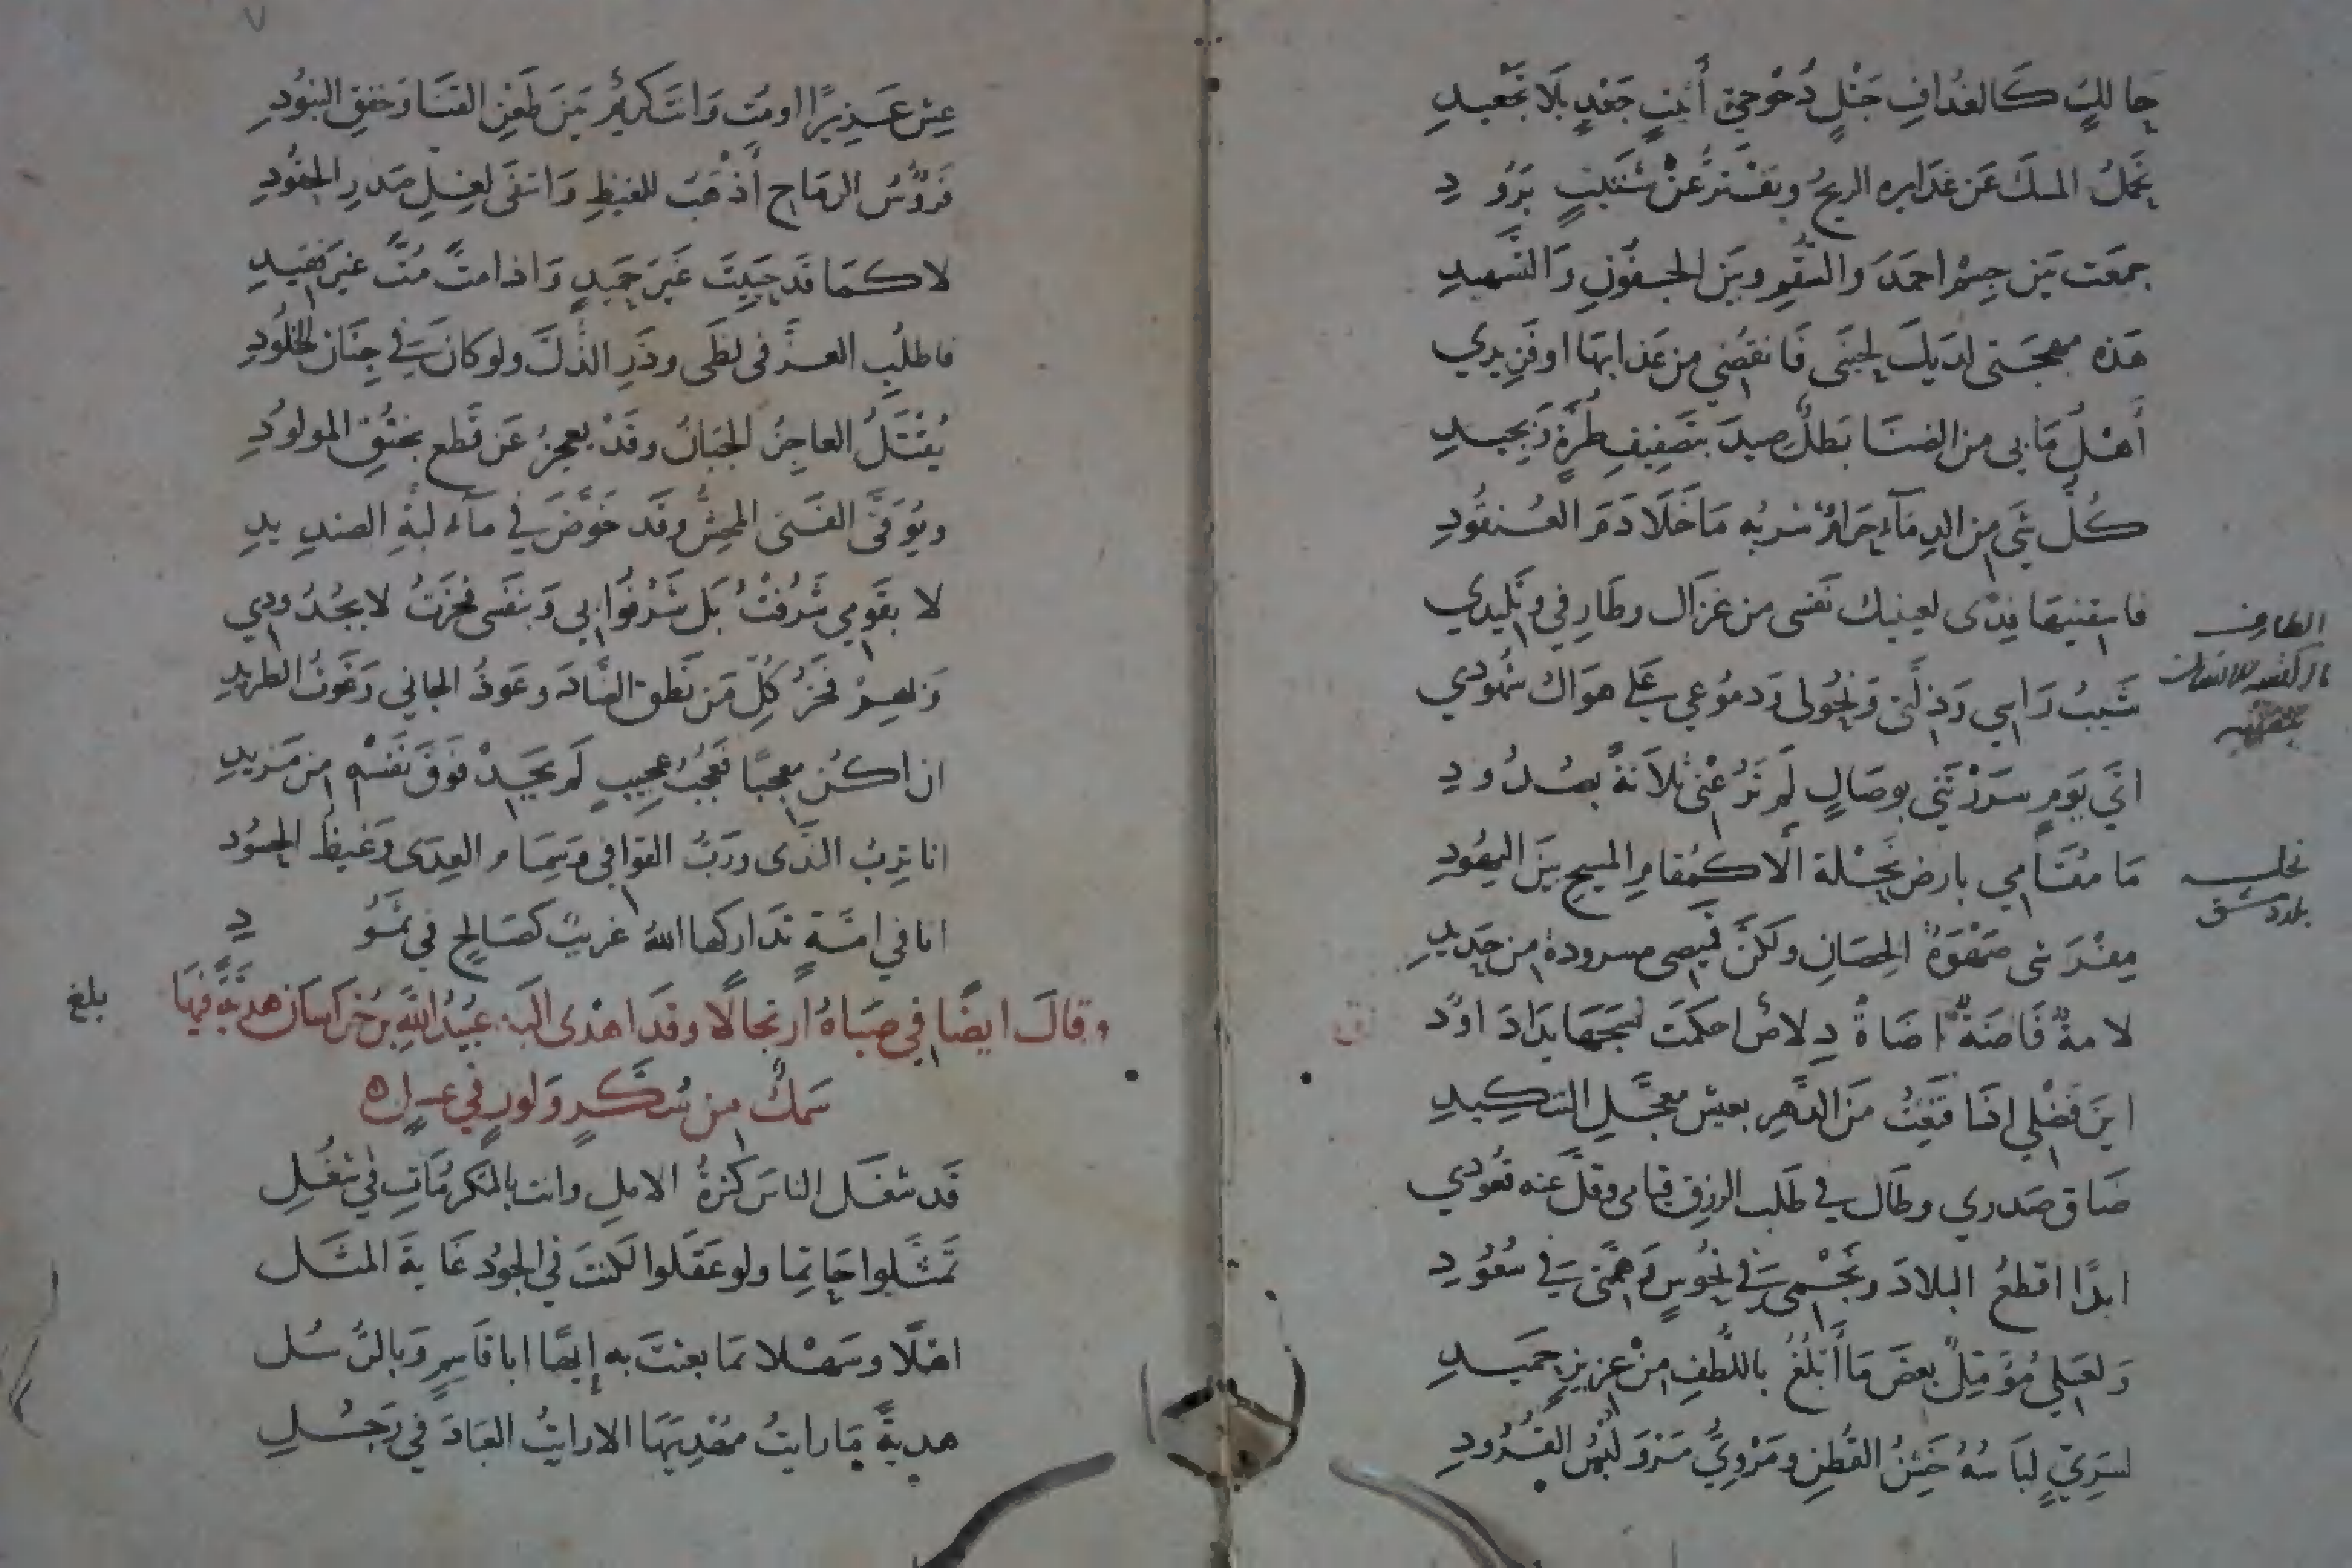 حالكٍ كالغُدافِ جَثْلٍ دَجُوجيٍّ أثيثٍ جَعْدٍ بلا تجعيدِ
تحملُ المسكَ عَن غدايره الريحُ وتفترُّ عَنْ شتيتٍ بَرُودِ
جمعَت بَين جِسْمِ احمَدَ والسقمِ وبَين الجفُونِ وَالتسهيدِ
هَذه مهجَتى لدَيكَ لحينَى فَانقصُني من عَذابهَا او فَزِيدي
أَهْلُ مَا بي من الضنَا بَطلٌ صيدَ بتَصفِيفِ طُرةٍ وَبجيدِ
كُلُّ شَيءٍ من الدِمَآءِ حَرَامٌ شربُه مَا خَلَا دَمَ العُنقُودِ
فاسقنيهَا فِدًى لعينيك نَفسى من غزَال وطَارِفي وتَليدي
شَيبُ رَاسي وَذِلَّتى وَنحُولى وَدموُعي عَلى هوَاك شهُودي
ائَّ يَومٍ سَرَرْتَنى بوصَالٍ لَم تَرُعْنى ثلاثةً بصُدُودِ
مَا مُقَامي بارض نَخْلة الّا كمُقامِ المسيحِ بَينَ اليهُودِ
مفْرَشى صَهْوَةُ الحصَانِ ولكنَّ قميصى مسرودة من حَديدِ
لامةٌ فَاضَةٌ اضَاةٌ دِلاصٌ احكمَت نسجَهَا يدَا دَاوُد
اينَ فَضْلي اذَا قنَعِتُ منَ الدَّهرِ بعيش معَجَّلِ التنكيدِ
ضَاق صَدري وطَال في طَلَب الرزِق قيامى وقلَّ عنه قعُودي
ابدًا اقطعُ البلادَ ونَجْمى في نحُوسٍ وَهمَّتى في سعُودِ
وَلعَلي مُؤَمِّلٌ بعضَ مَا أَبْلُغُ باللُّطفِ منْ عَزيزٍ حَميدِ
لسَرِيٍّ لبَاسُهُ خَشِنُ القُطنِ ومَرْوِيُّ مَرْوَ لُبْسُ القُرُودِ
الطارف
نخله
بلد دمشق
عِش عَزيزًا او مُت وَانتَ كَريمٌ بَينَ طَعْنِ القنَا وَخفقِ البنُودِ
فَرؤُسُ الرمَاحِ أَذْهَبُ للغَيظِ وَاشفَى لغِلِ صَدرِ الحقُودِ
لا كمَا قَد حَييتَ غَيرَ حَميدٍ وَاذا متَّ مُتَّ غيرَ فقيدِ
فاطلُبِ العزَّ فى لظَى وذَرِ الذُّلَّ ولو كانَ في جِنَانِ الخلُودِ
يُقْتَلُ العاجِزُ الجبَانُ وقَدْ يعجِزُ عَن قَطعِ بخنُقِ المولوُدِ
ويُوَقَّى الفَتى المِخَشُّ وقَد خَوَّضَ في مآءِ لبَّةِ الصنديدِ
لا بقَومي شَرُفتُ بَل شَرُفُوا بي وَبنَفسى فخَرتُ لا بجُدُودي
وَبهِمْ فَخرُ كُلِّ مَن نَطقَ الضَّادَ وعَوذُ الجاني وَغَوثُ الطريدِ
ان اكُن معجبًا فعُجْبُ عجيبٍ لَم يَجدْ فَوقَ نَفسْهِ من مَزيدِ
انا تِربُ النَّدَى ورَبُّ القوافي وسِمَامُ العِدَى وَغَيظُ الحسُود
انا في امَّةٍ تدَاركَها اللهُ غريبٌ كصَالحٍ في ثمَوُدِ
وقَالَ ايضًا في صَبَاهُ ارتجالًا وقَد اهدَى الَيه عُبيدُ اللهِ بنُ خرَاسَان هديَّةً فيهَا
بلغ
سَمكٌ من سُكَّرٍ ولَوزٍ في عسلٍ
قَد شغَل الناسَ كثرةُ الاملِ وانت بالمكرمَاتِ في شُغُلِ
تَمثَّلوا حَاتِمًا ولو عَقَلوا لكنتَ في الجُودِ غَايةَ المثَلِ
اهْلًا وسَهْلًا بمَا بعثتَ به إيهًا ابا قَاسِمٍ وَبالرُّسُل
هديةٌ مَا رايتُ مهُديَهَا الا رايتُ العبَادَ في رَجُلِ